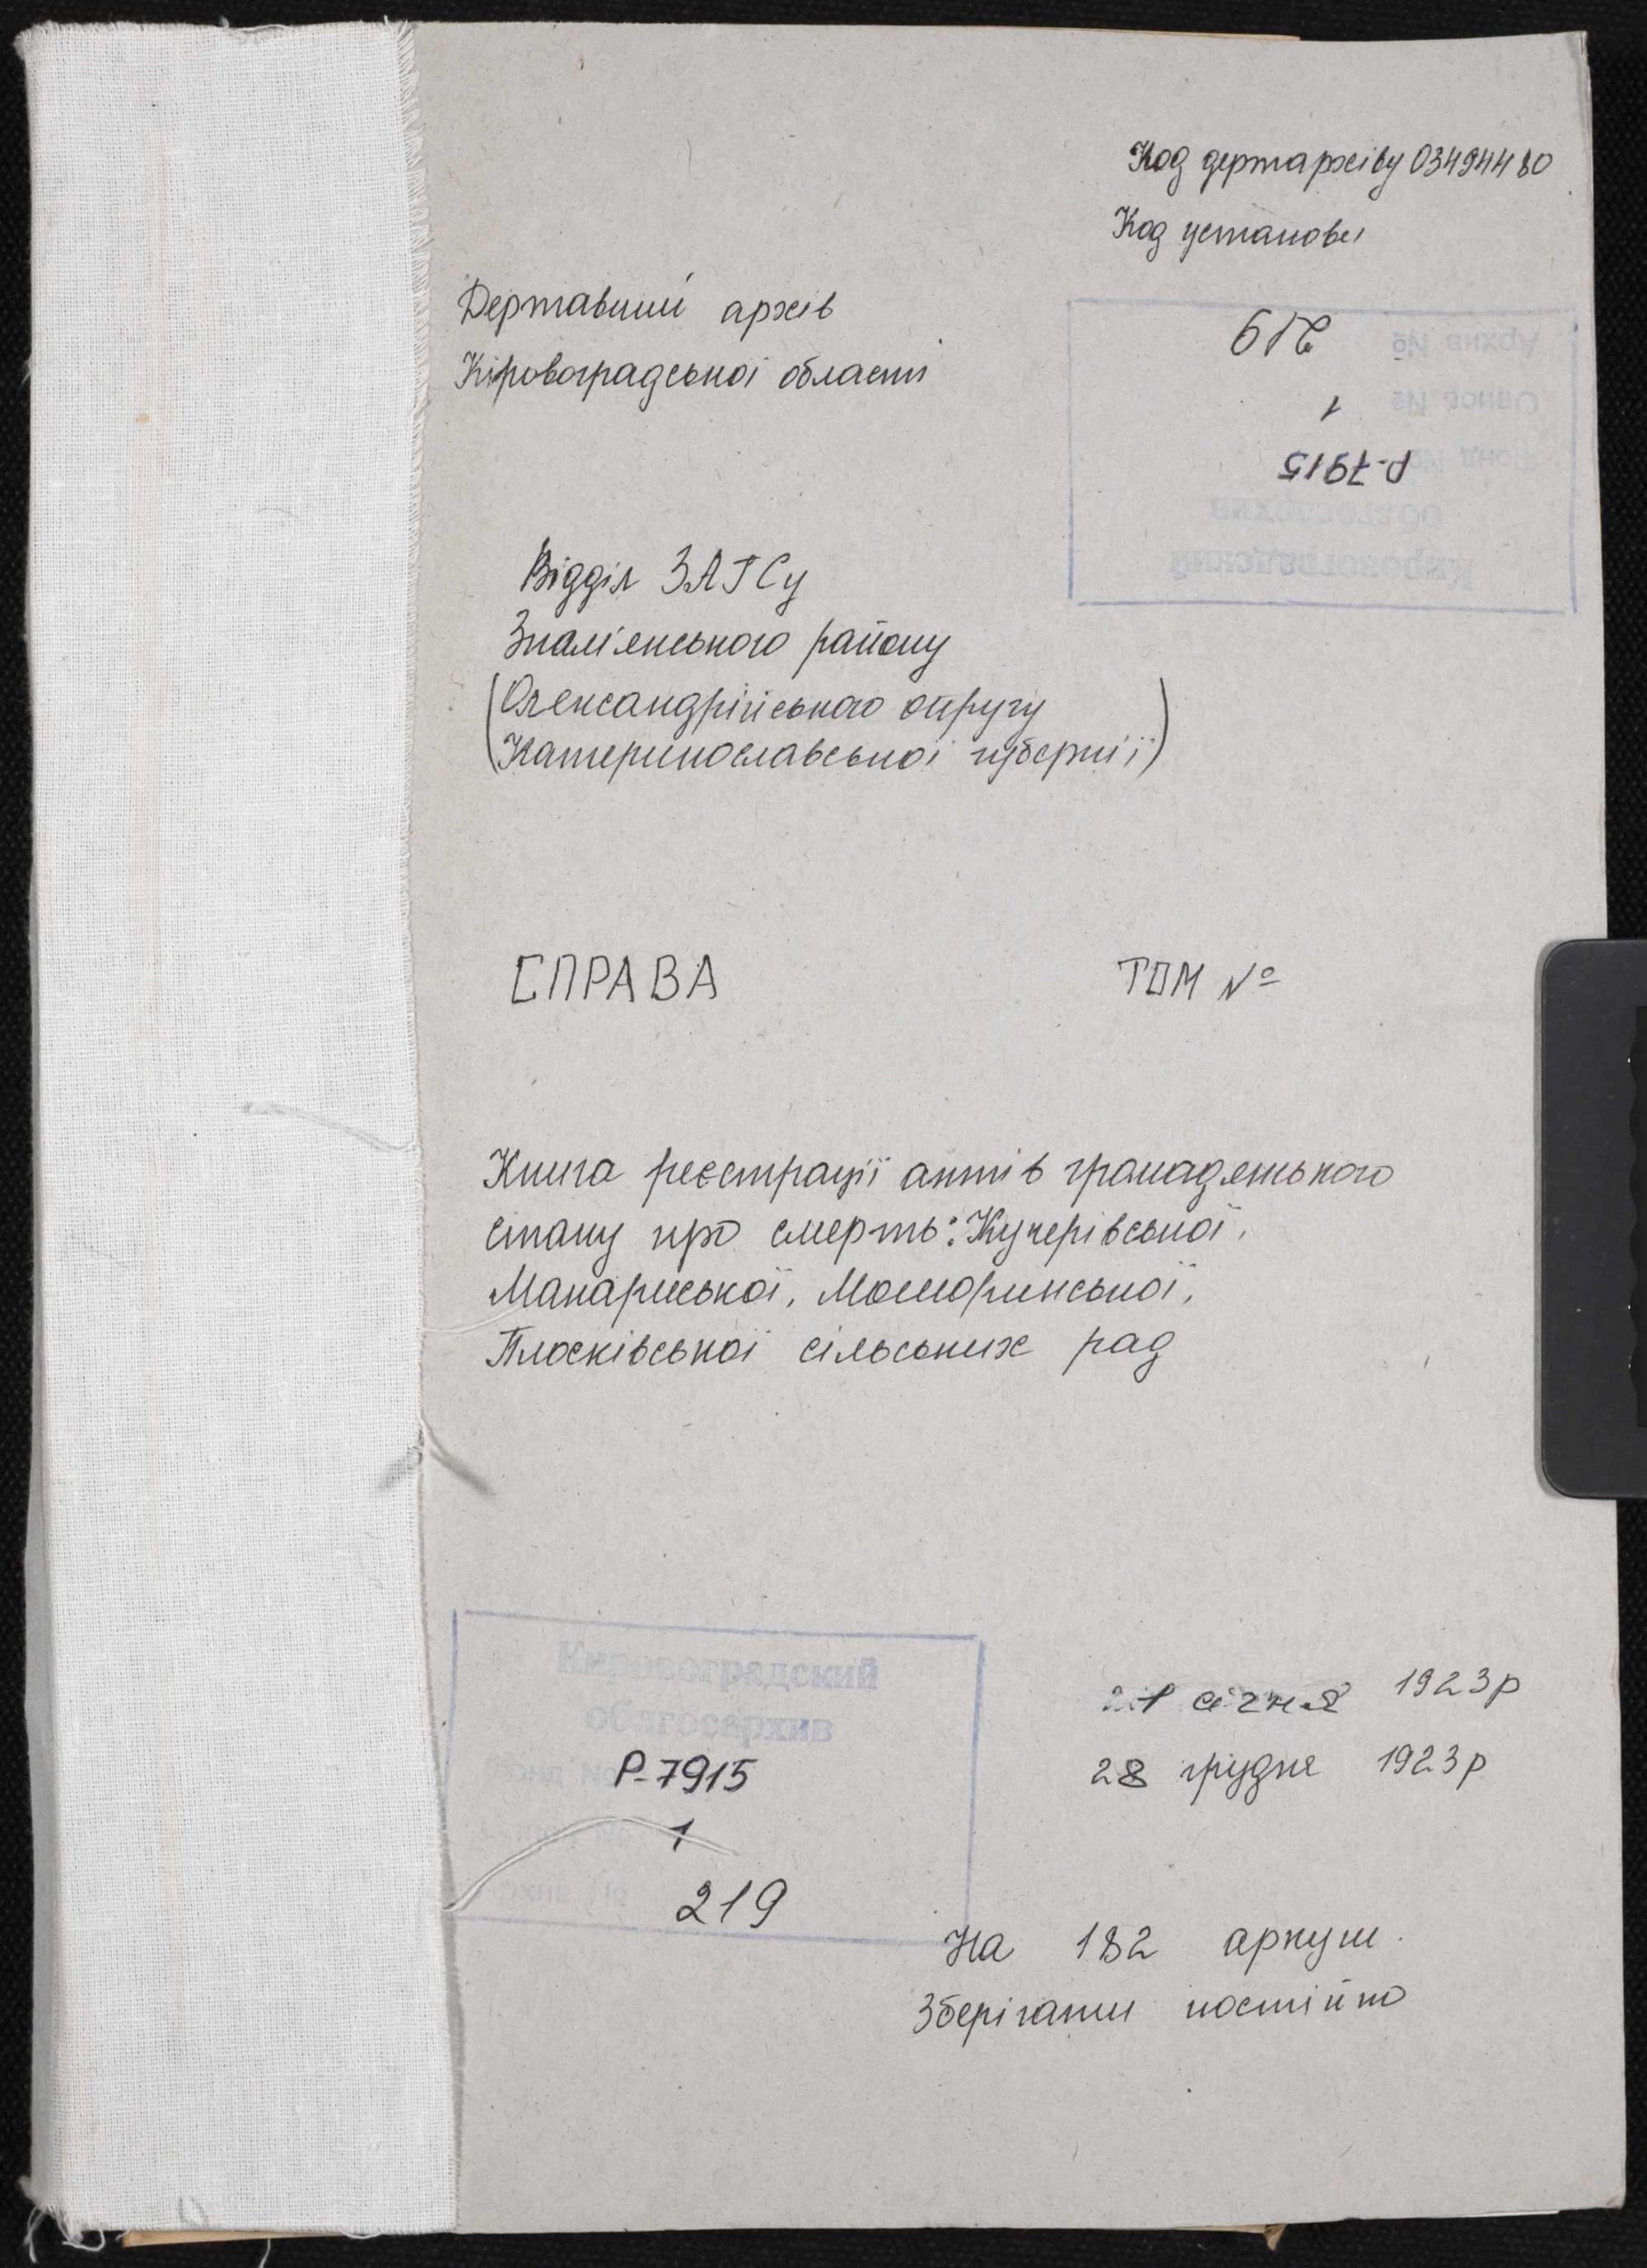 Код держархіву 03494480
Код установи
Державний архів
Кіровоградської області
Архив № 219
Опись № 1
Фонд № Р-7915
облгосархив
Кировоградский
Відділ ЗАГСу
Знам'янського району
(Олександрійського округу
Катеринославської губернії)
СПРАВА ТОМ №
Книга реєстрації актів громадянського
стану про смерть: Кучерівської,
Макариської, Мошоринської,
Плосківської сільських рад
Кировоградский
облгосархив
Фонд № Р-7915
1
Архив № 219
січня 1923р
28 грудня 1923р
На 182 аркуш.
Зберігати постійно